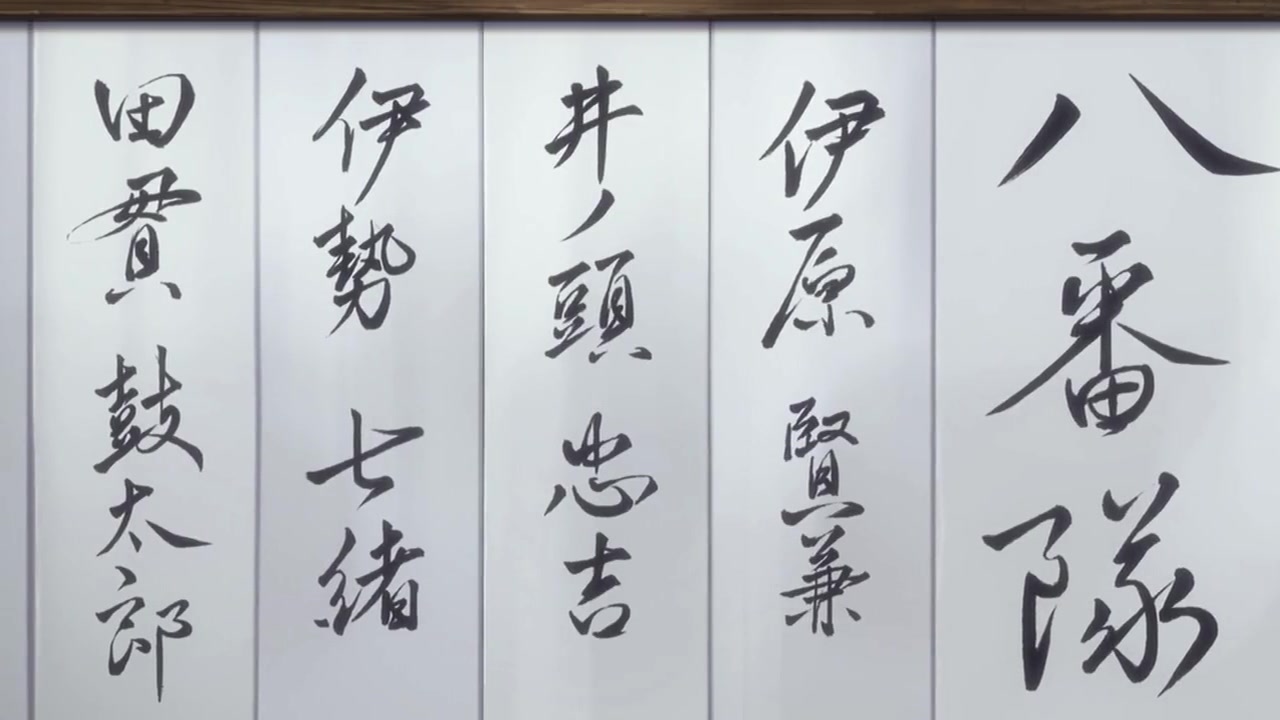 八番隊
伊原 賢兼
井ノ頭 忠吉
伊勢 七緒
田貫 鼓太郎